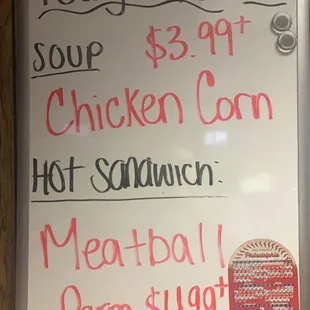 SOUP $3.99+
Chicken Corn
Hot Sandwich:
Meatball
Parm $11.99+
Philadelphia